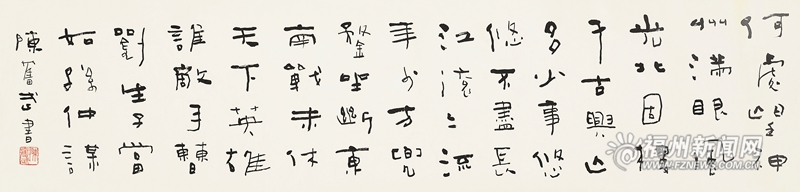 何處望神
州滿眼風
光北固樓
千古興亡
多少事悠
悠不盡長
江滾〻流
年少万兜
鍪坐斷東
南戰未休
天下英雄
誰敵手曹
劉生子當
如孫仲謀
陳奮武書
福州新闻网
WWW.FZNEWS.COM.CN